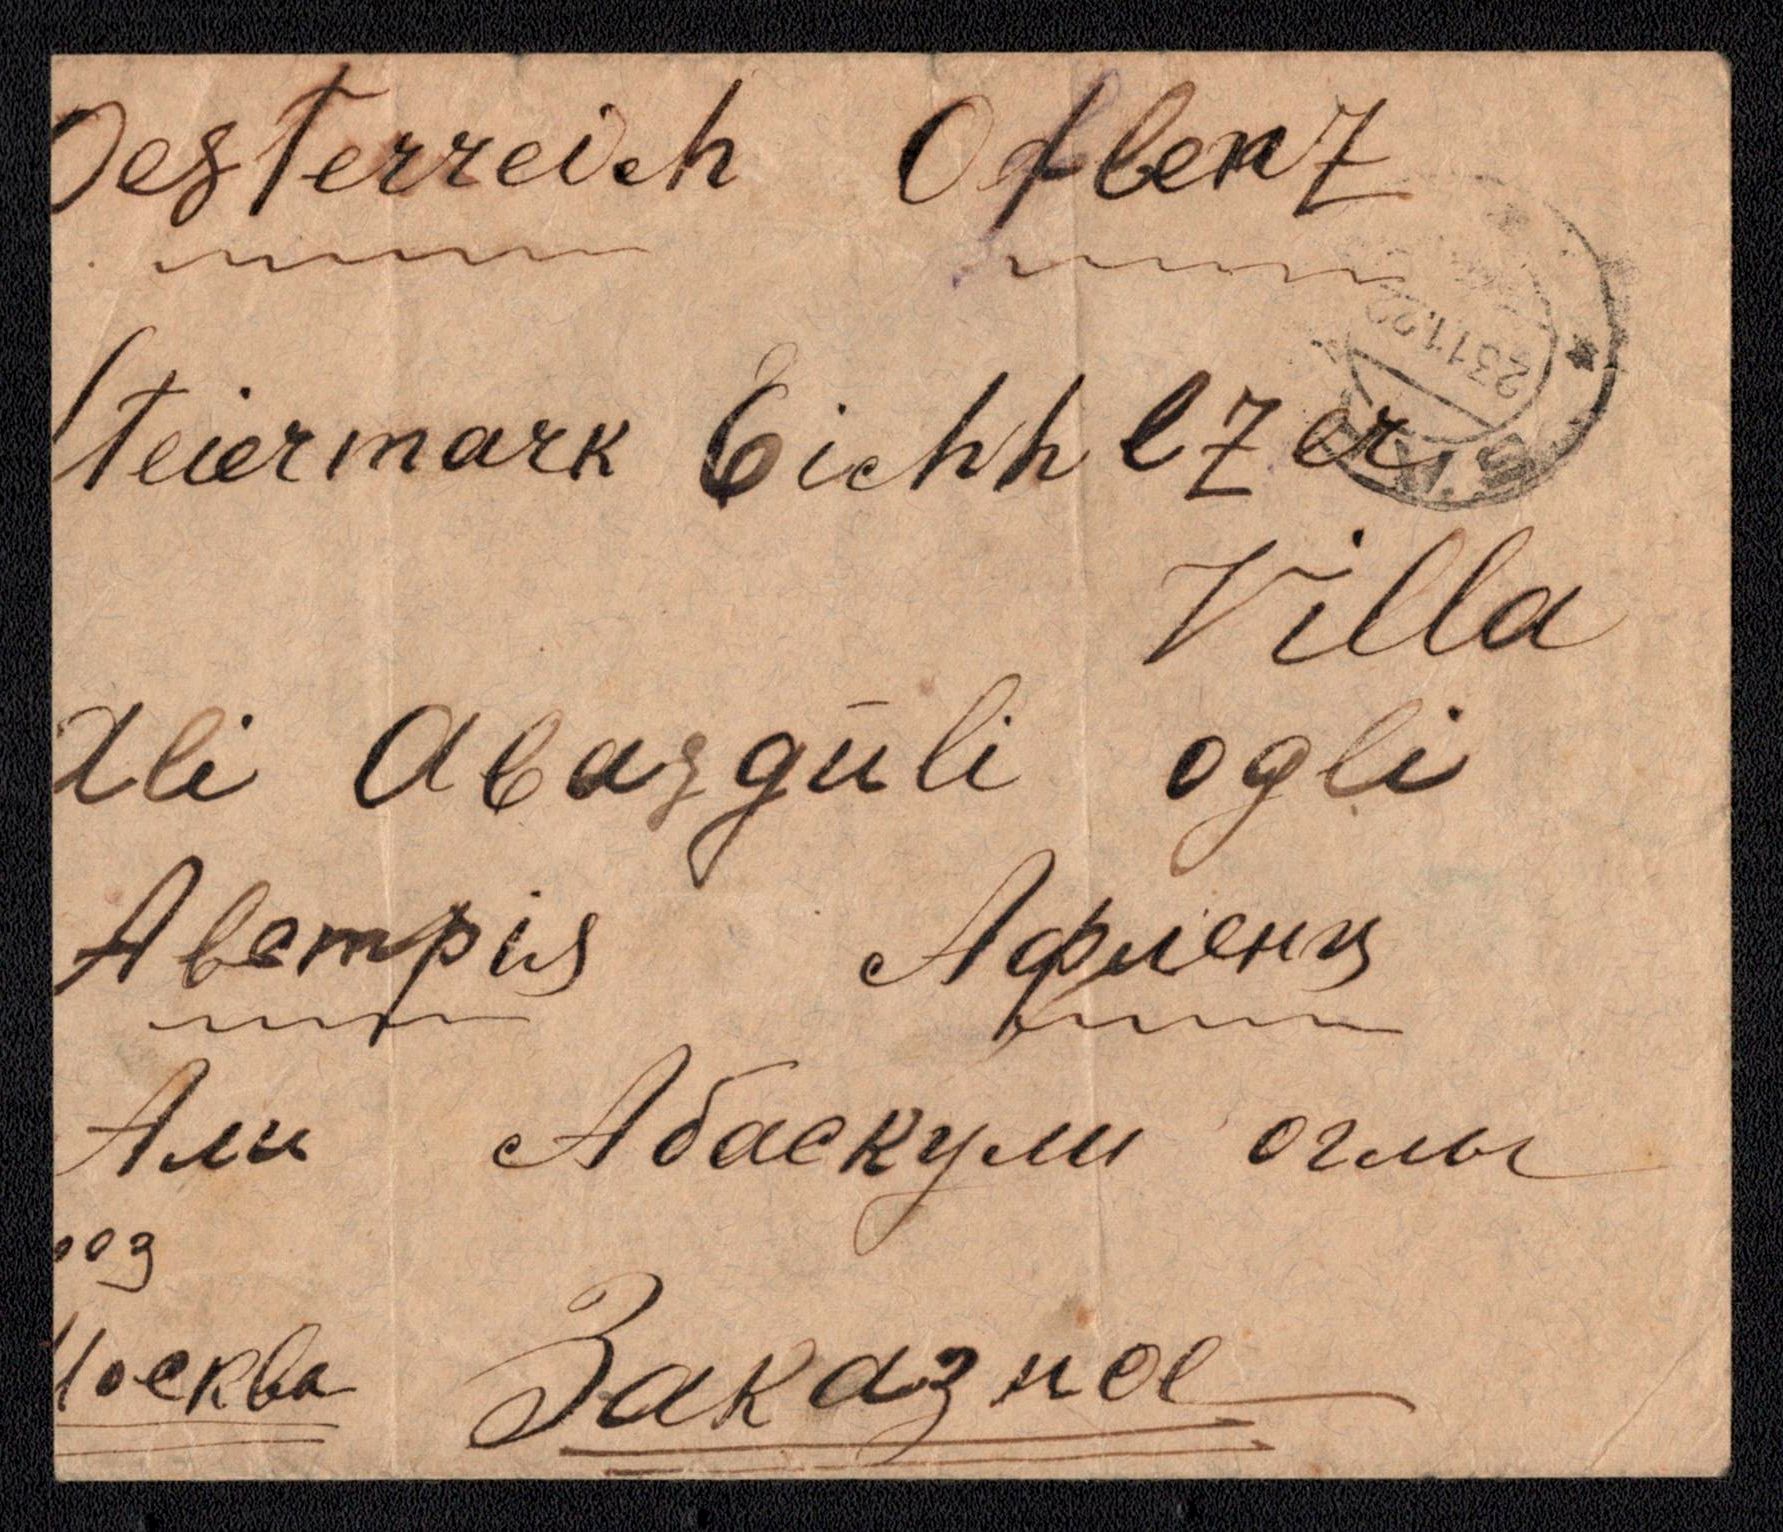 Oesterreich Oflenz
Steiermark Eichhlzer
Villa
Ali Abazgüli ogli
Австрія Афленц
Али Абаскули оглы
роз
Москва Заказное
23.11.22